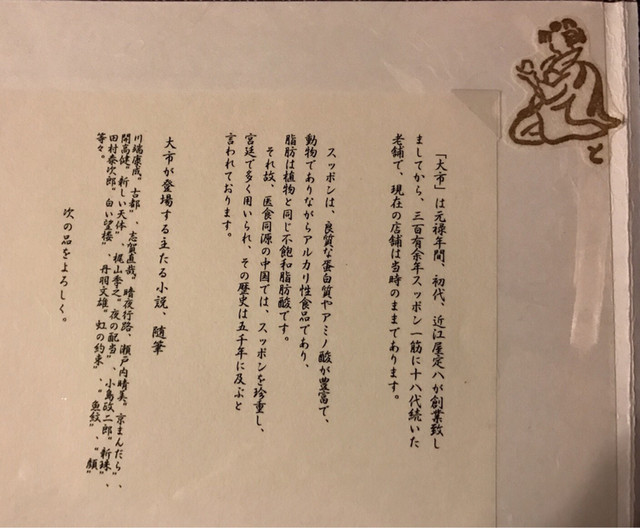 「大市」は元禄年間、初代、近江屋定八が創業致し
ましてから、三百有余年スッポン一筋に十八代続いた
老舗で、現在の店舗は当時のままであります。
スッポンは、良質な蛋白質やアミノ酸が豊富で、
動物でありながらアルカリ性食品であり、
脂肪は植物と同じ不飽和脂肪酸です。
それ故、医食同源の中国では、スッポンを珍重し、
宮廷で多く用いられ、その歴史は五千年に及ぶと
言われております。
大市が登場する主たる小説、随筆
川端康成〝古都〟、志賀直哉〝暗夜行路〟、瀬戸内晴美〝京まんだら〟、
開高健〝新しい天体〟、梶山季之〝夜の配当〟、小島政二郎〝新珠〟、
田村泰次郎〝白い望楼〟、丹羽文雄〝虹の約束〟、〝魚紋〟、〝顔〟
等々。
次の品をよろしく。
と